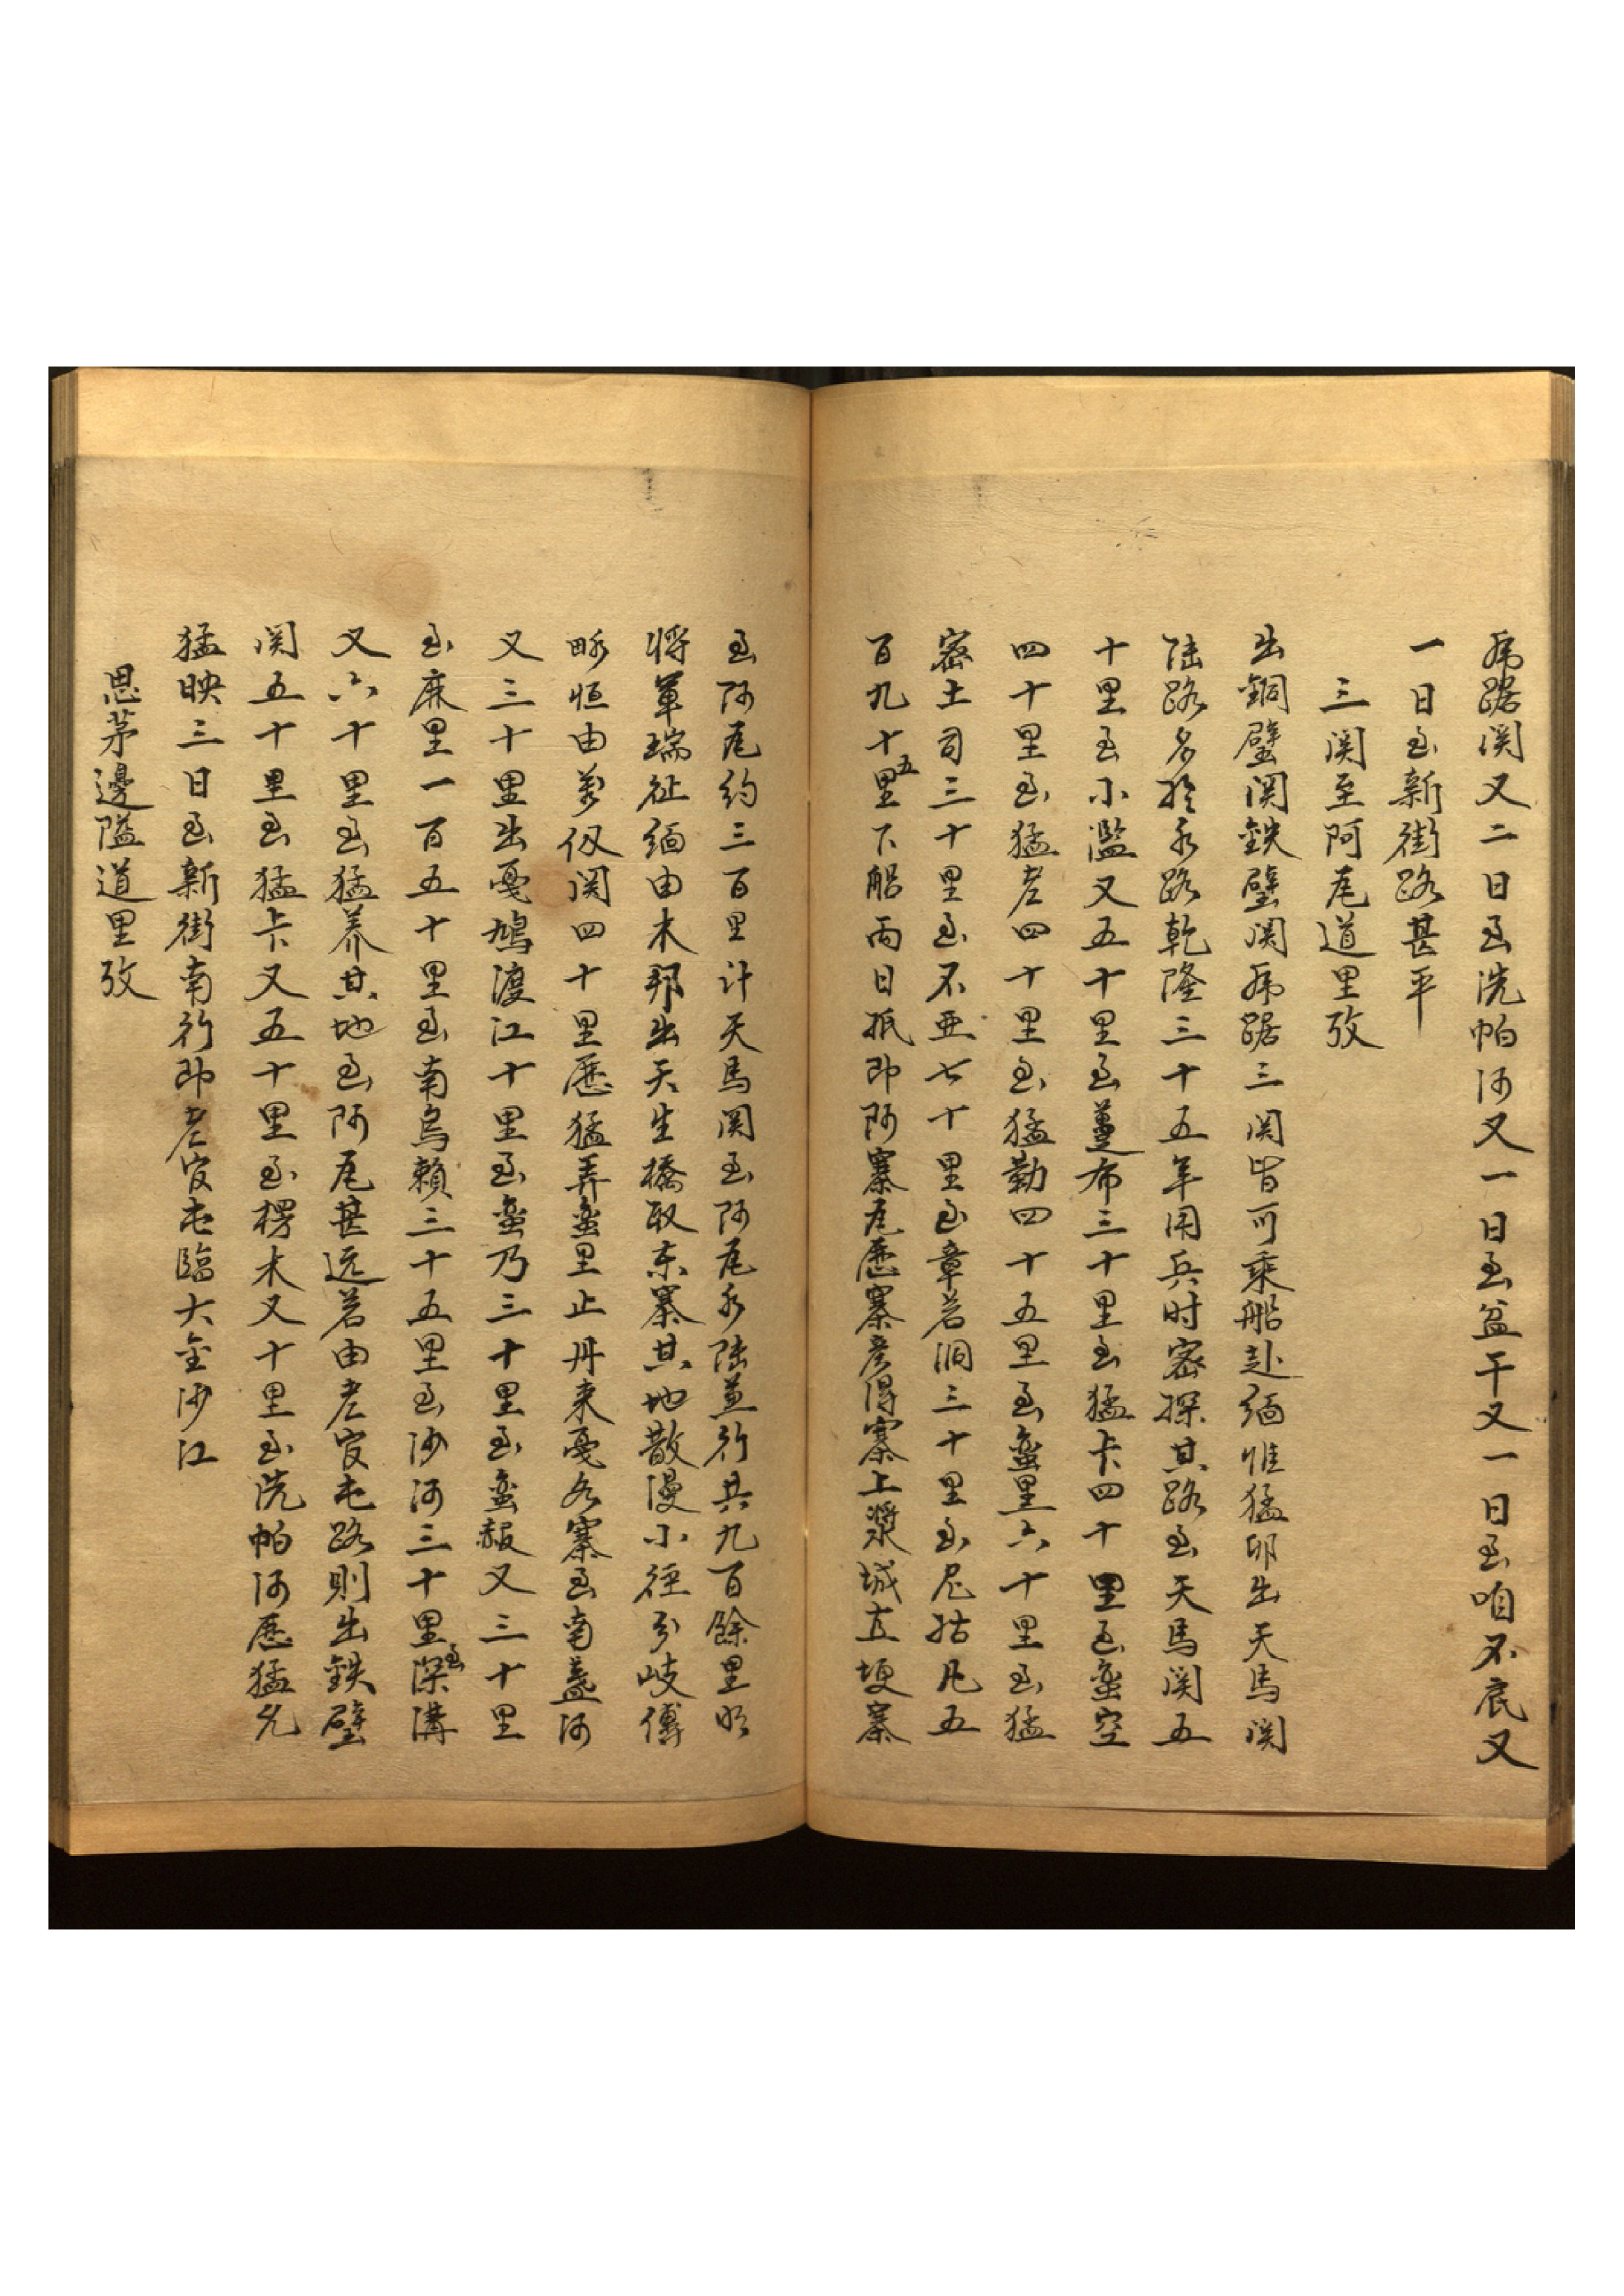 虎踞関又二日至洗帕河又一日至盆干又一日至咱不底又
一日至新街路甚平
三関至阿尾道里攷
出銅壁関鉄壁関虎踞三関皆可乗船赴緬惟猛卯出天馬関
陸路多於水路乾隆三十五年用兵时密探其路至天馬関五
十里至小濫又五十里至蔓布三十里至猛卡四十里至蛮空
四十里至猛老四十里至猛勒四十五里至蛮里六十里至猛
密土司三十里至不亜七十里至章若洞三十里至尼姑凡五
百九十五里下船両日抵即阿寨尾歴寨彦得寨上漿城直埂寨
至阿尾約三百里计天馬関至阿尾水陸並行共九百餘里明
将軍瑞征緬由木邦出天生橋取东寨其地散漫小径分岐傅
畧恒由萬仭関四十里歴猛弄蛮里止丹来戞各寨至南盞河
又三十里出戞鳩渡江十里至蛮乃三十里至蛮赧又三十里
至麻里一百五十里至南烏頼三十五里至沙河三十里至深溝
又六十里至猛养其地至阿尾甚远若由老官屯路則出鉄壁
関五十里至猛卡又五十里至楞木又十里至洗帕河歴猛允
猛映三日至新街南行即老官屯臨大金沙江
思茅邊隘道里攷